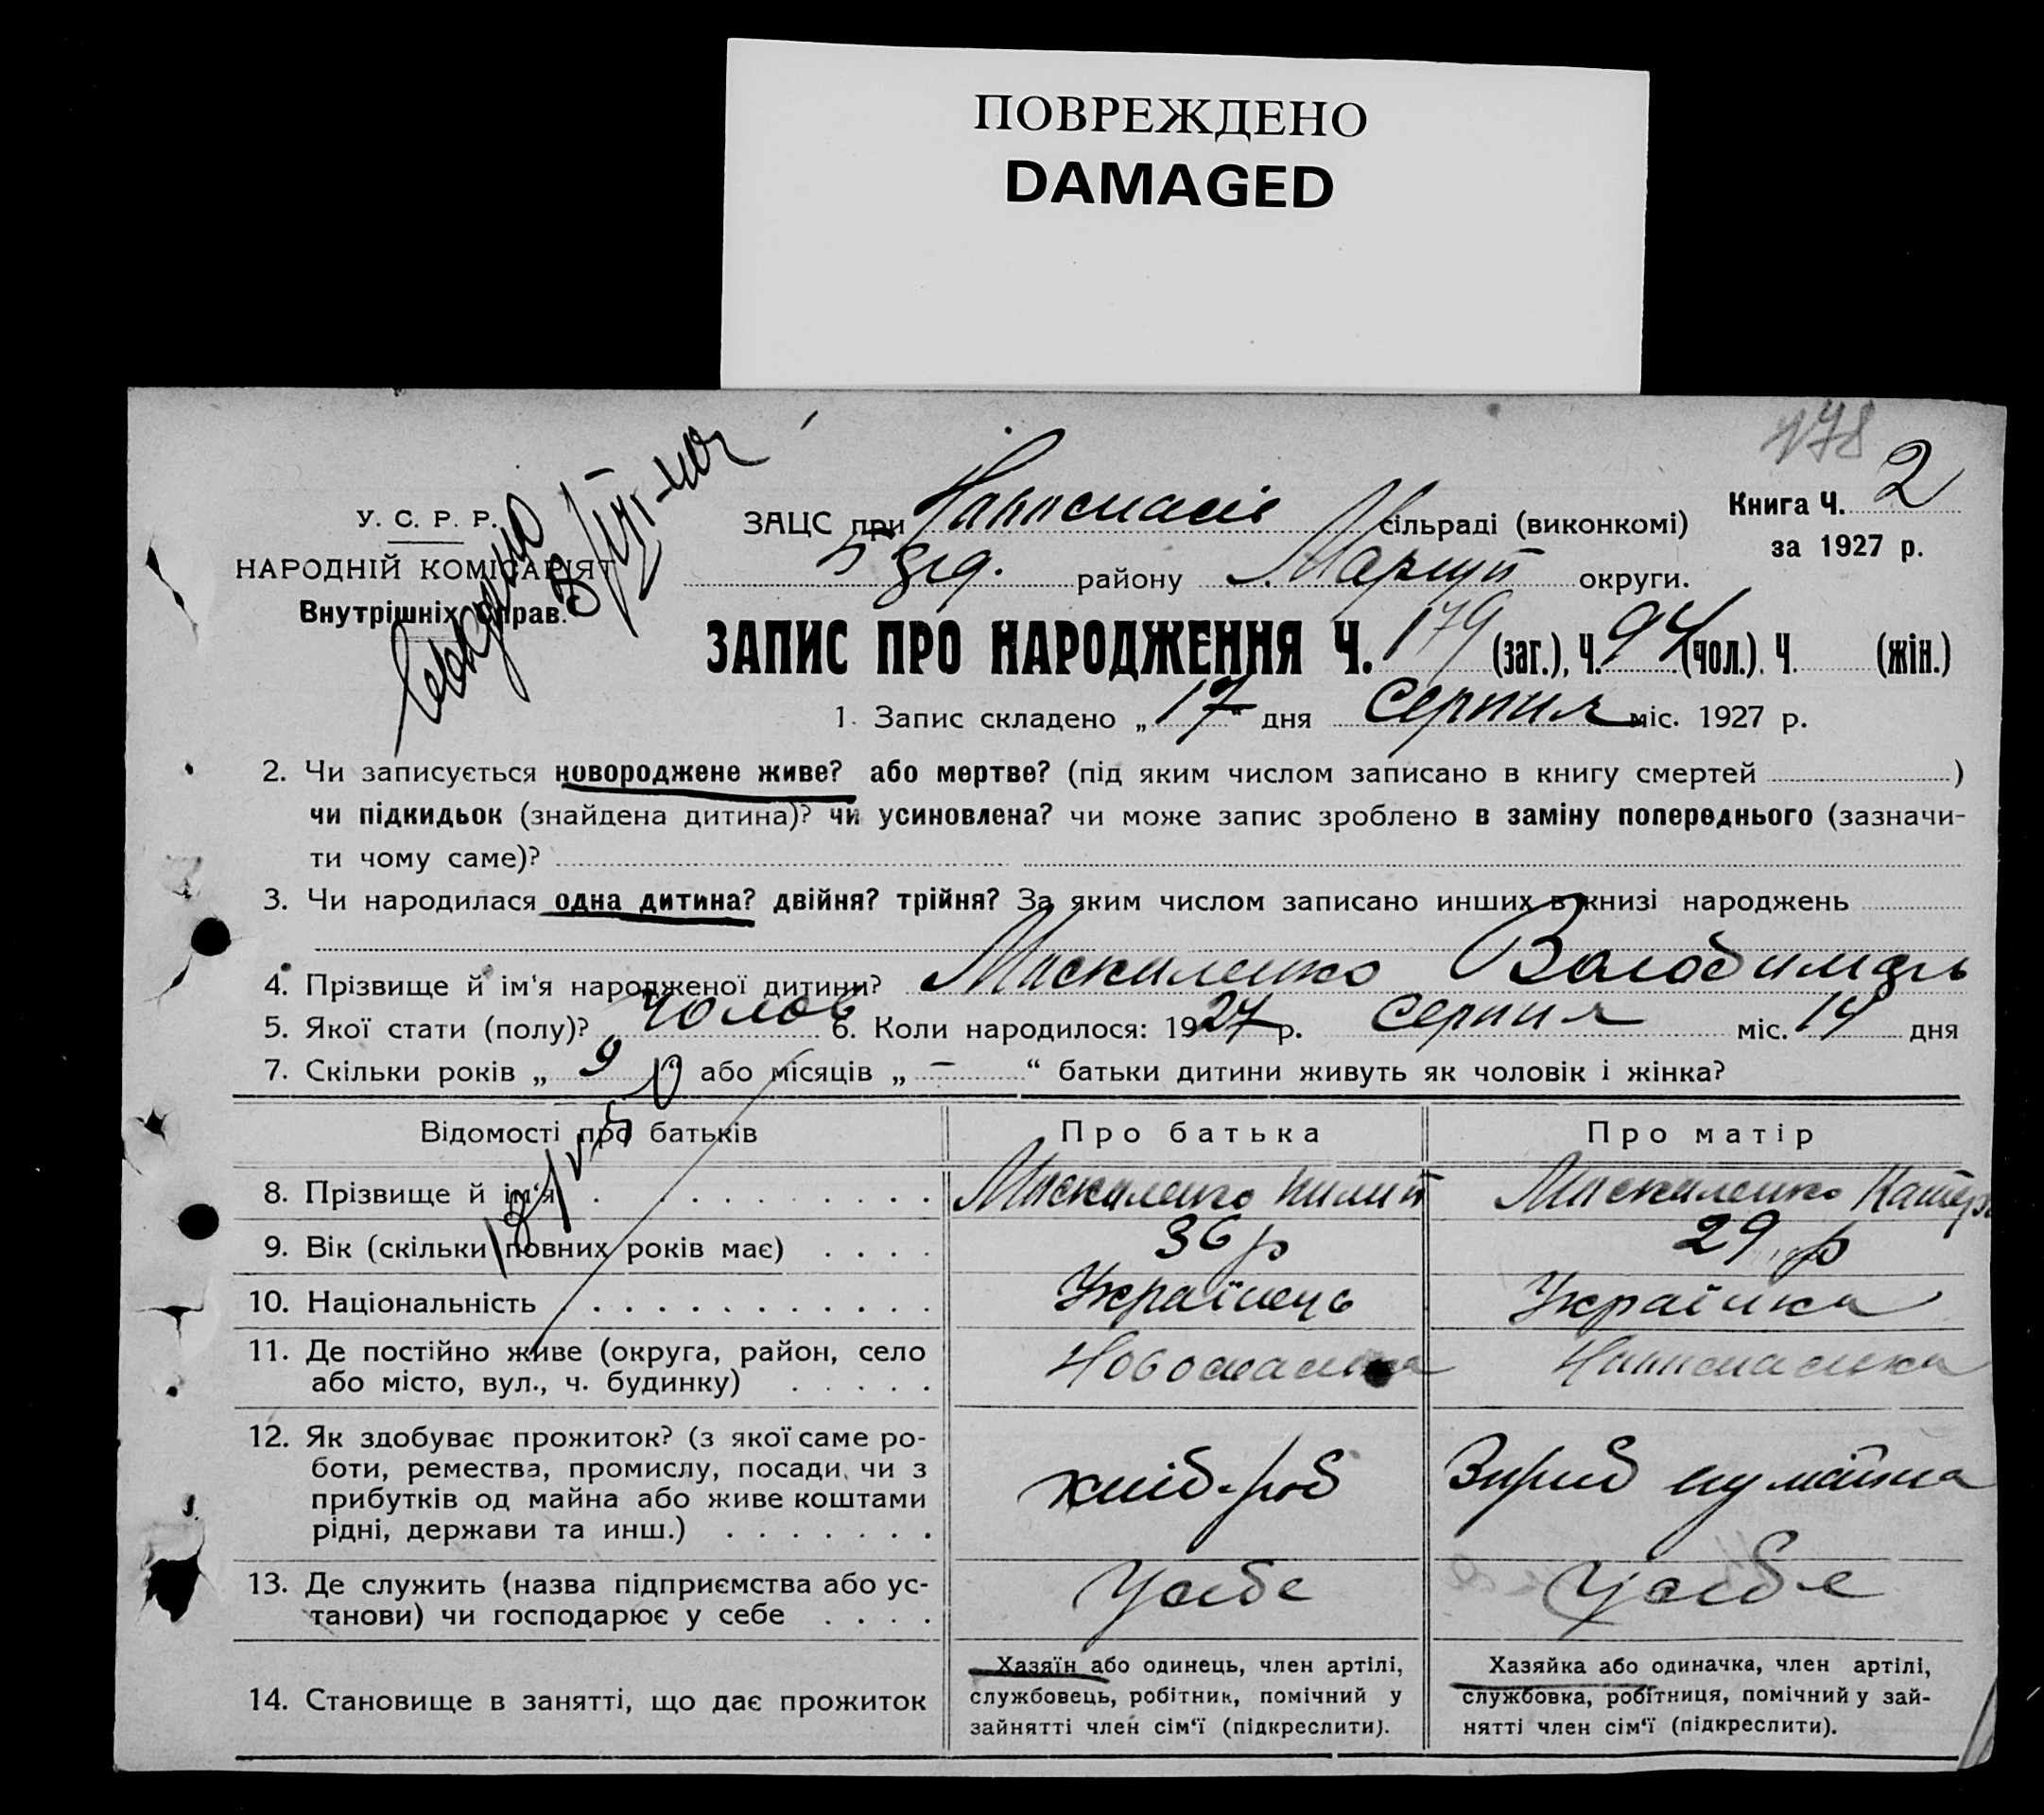 ПОВРЕЖДЕНО
DAMAGED
178
У. С. Р. Р.
НАРОДНІЙ КОМІСАРІЯТ
Внутрішніх Справ.
ЗАЦС при сільраді (виконкомі)
району Маріуп округи.
Книга Ч. 2
за 1927 р.
ЗАПИС ПРО НАРОДЖЕННЯ Ч. 179 (заг.), Ч. 94 (чол.). Ч. (жін.)
1. Запис складено „ 17 “ дня Серпня міс. 1927 р.
2. Чи записується новороджене живе? або мертве? (під яким числом записано в книгу смертей )
чи підкидьок (знайдена дитина)? чи усиновлена? чи може запис зроблено в заміну попереднього (зазначи-
ти чому саме)?
3. Чи народилася одна дитина? двійня? трійня? За яким числом записано инших в книзі народжень
4. Прізвище й ім‘я народженої дитини? Москаленко Володимир
5. Якої стати (полу)? чолов 6. Коли народилося: 1927 р. Серпня міс. 14 дня
7. Скільки років „ 9 або місяців „ – “ батьки дитини живуть як чоловік і жінка?
Відомості про батьків Про батька Про матір
8. Прізвище й ім‘я Москаленко Пилип Москаленко Катер
9. Вік (скільки повних років має) 36 р 29 р
10. Національність Українець Українка
11. Де постійно живе (округа, район, село
або місто, вул., ч. будинку)
12. Як здобуває прожиток? (з якої саме ро-
боти, ремества, промислу, посади, чи з
прибутків од майна або живе коштами
рідні, держави та инш.)
хліб-роб
13. Де служить (назва підприємства або ус-
танови) чи господарює у себе
У себе У себе
14. Становище в занятті, що дає прожиток
Хазяїн або одинець, член артілі,
службовець, робітник, помічний у
зайнятті член сім‘ї (підкреслити).
Хазяйка або одиначка, член артілі,
службовка, робітниця, помічний у зай-
нятті член сім‘ї (підкреслити).